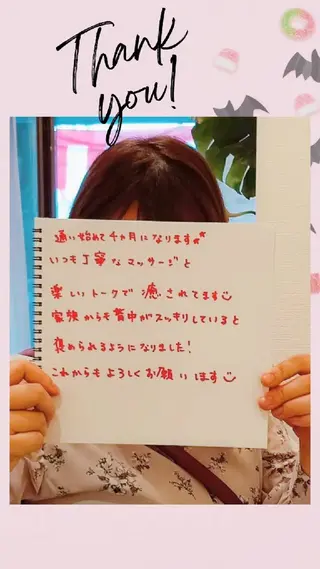 Thank
you!
通い始めて4ヶ月になります
いつも丁寧なマッサージと
楽しいトークで癒されてます
家族からも背中がスッキリしていると
褒められるようになりました!
これからもよろしくお願いします